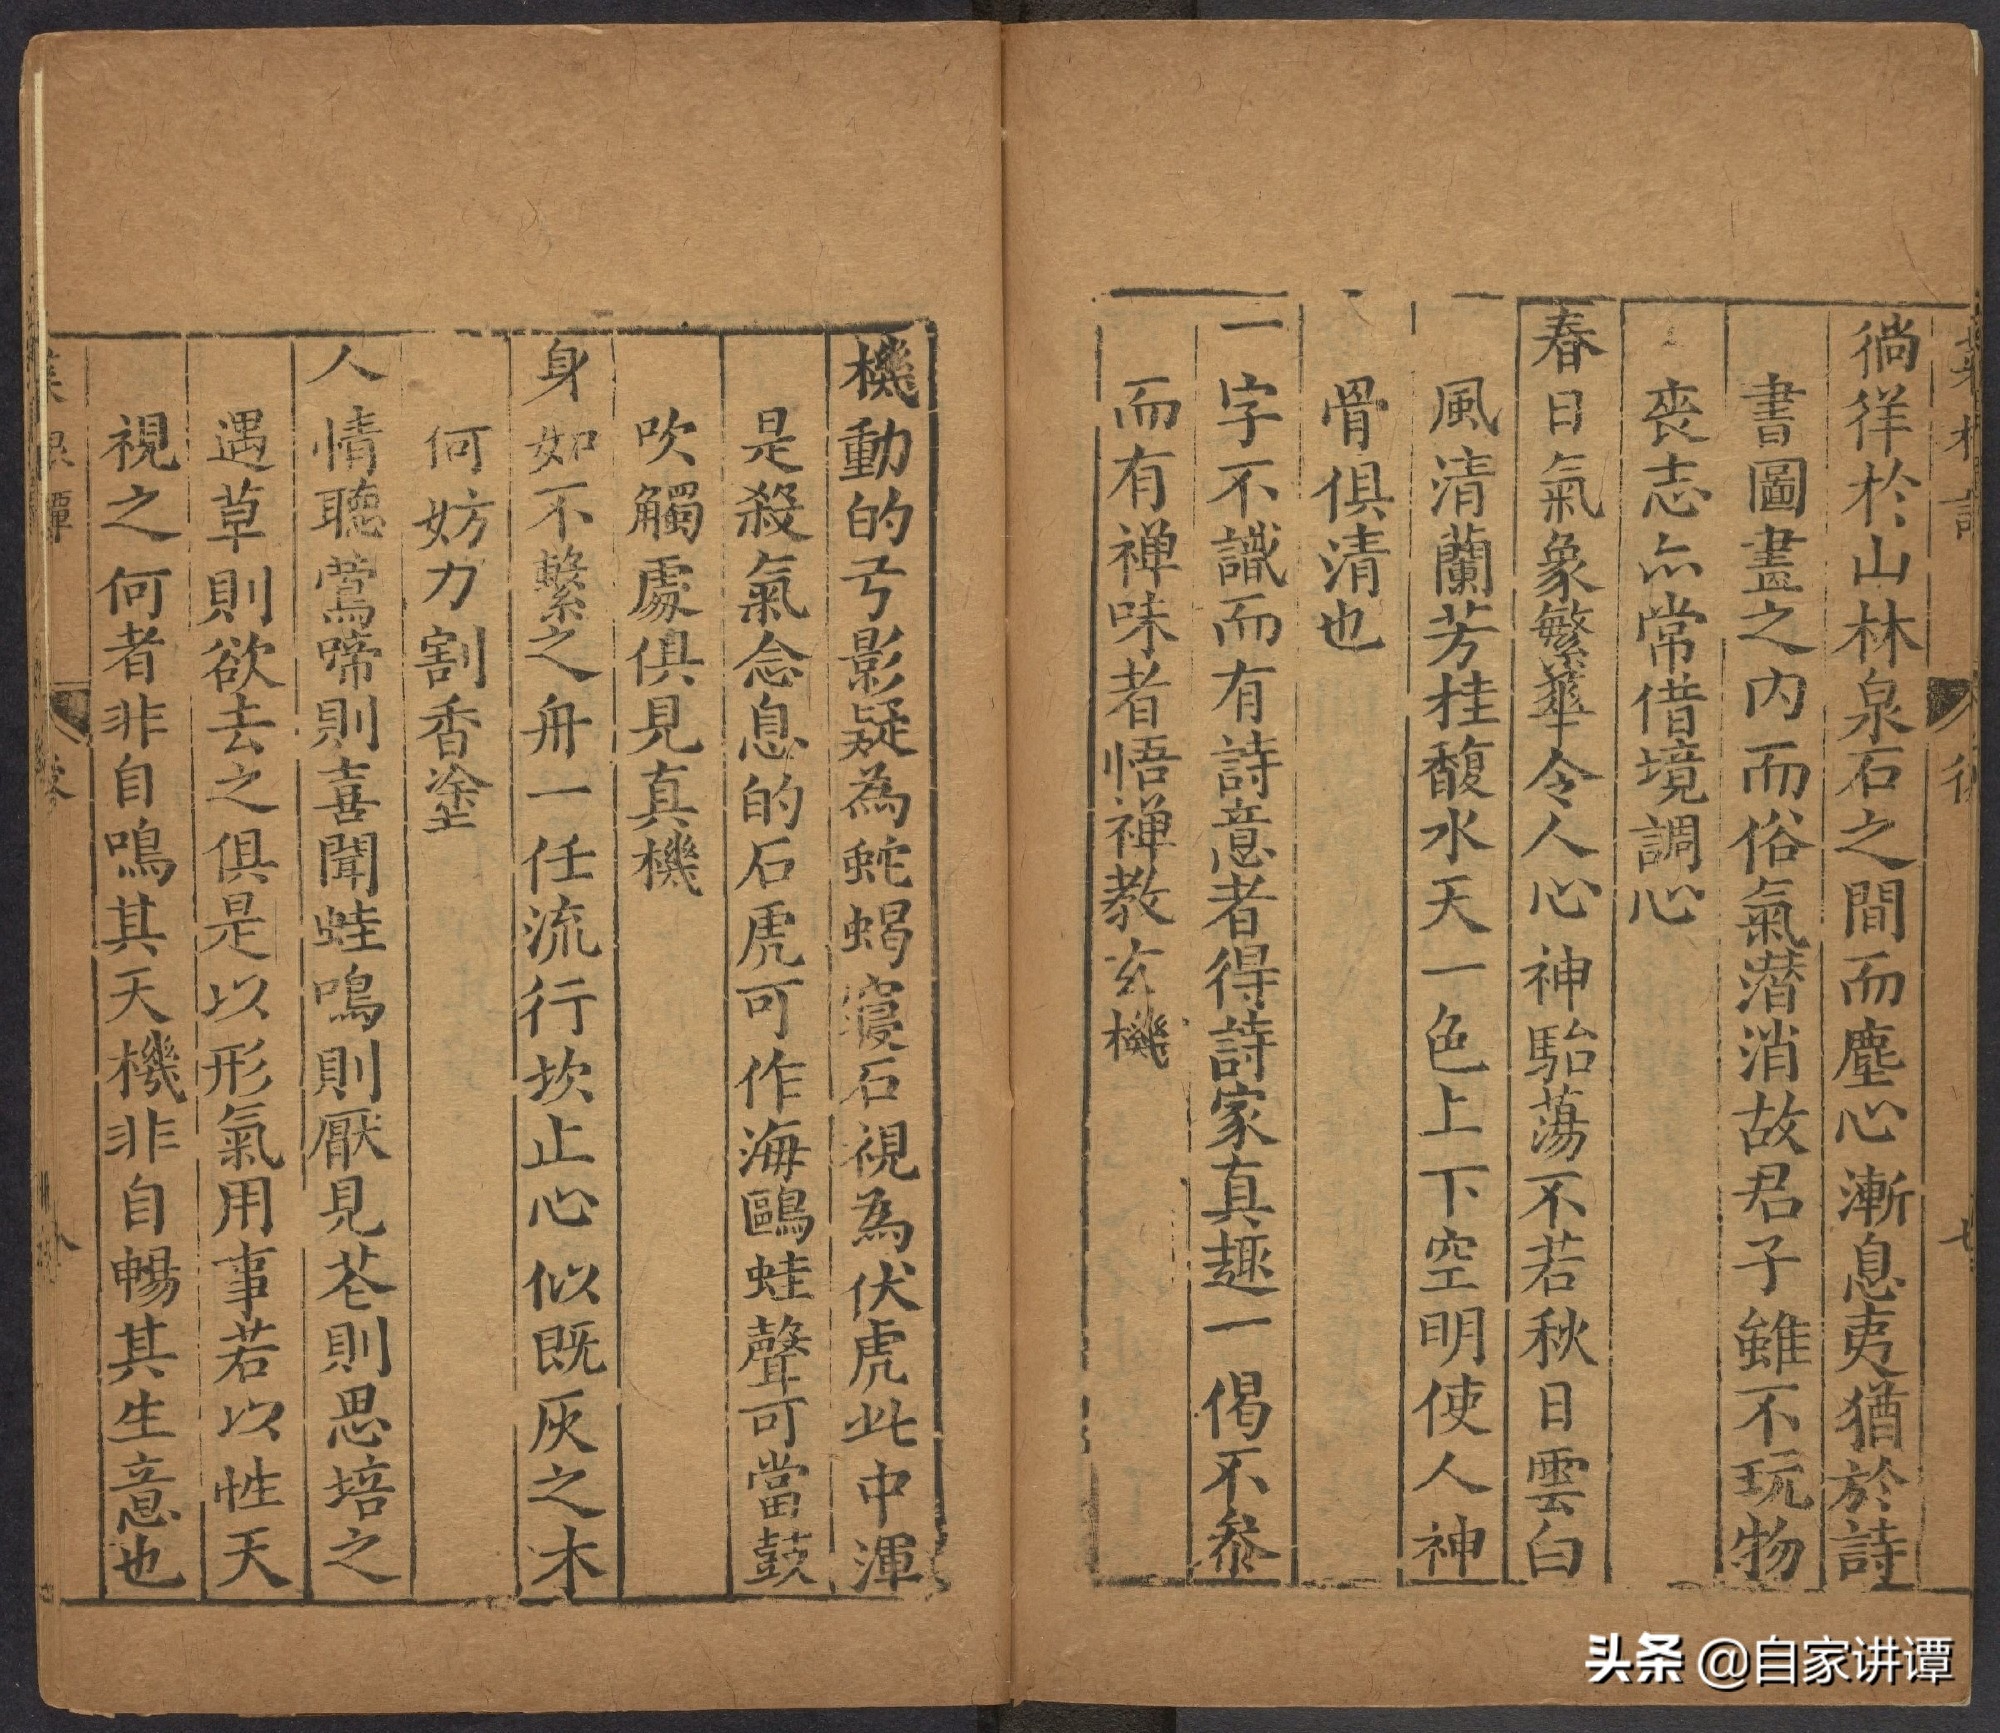 徜徉於山林泉石之間而塵心漸息夷猶於詩
書圖畫之内而俗氣潜消故君子雖不玩物
喪志亦常借境調心
春日氣象繁華令人心神駘蕩不若秋日雲白
風清蘭芳桂馥水天一色上下空明使人神
骨俱清也
一字不識而有詩意者得詩家真趣一偈不叅
而有禅味者悟禅教玄機
機動的弓影疑為蛇蝎寢石視為伏虎此中渾
是殺氣念息的石虎可作海鷗蛙聲可當鼓
吹觸處俱見真機
身如不繫之舟一任流行坎止心似既灰之木
何妨刀割香塗
人情聽鶯啼則喜聞蛙鳴則厭見苍則思培之
遇草則欲去之俱是以形氣用事若以性天
視之何者非自鳴其天機非自暢其生意也
八
头条 @自家讲谭